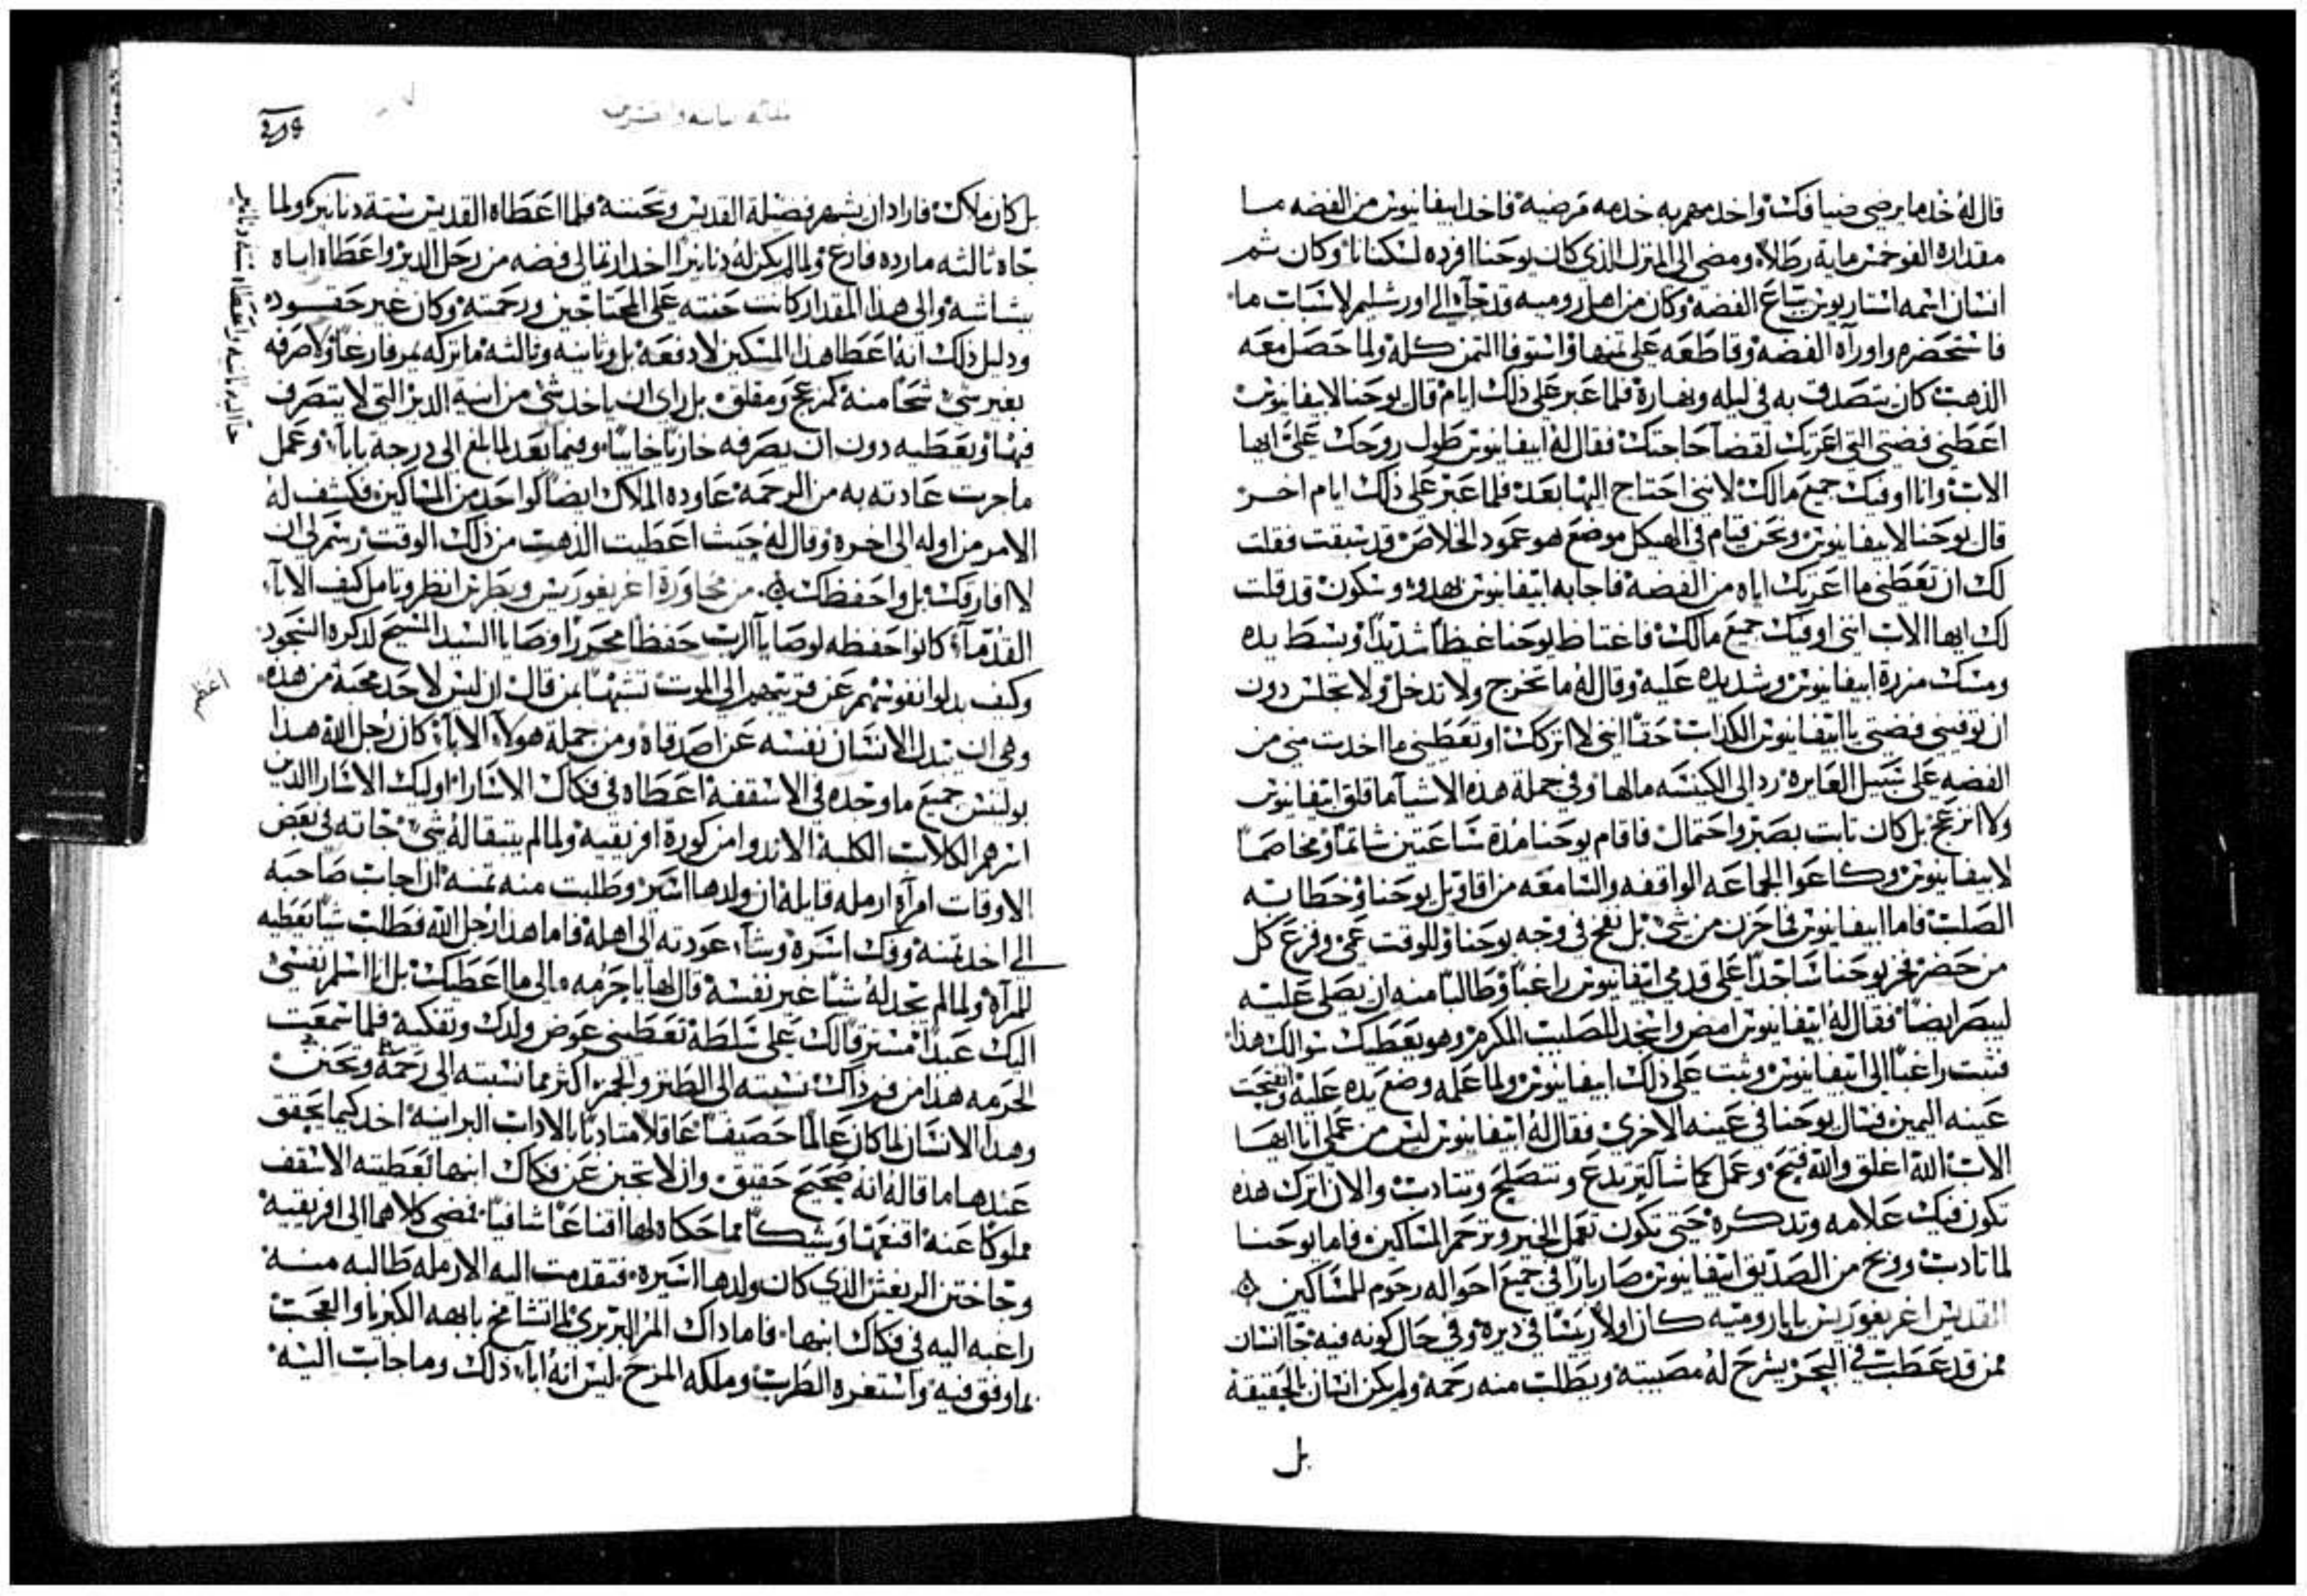 قال له خد ما يرضي ضيافك واخدمهم به خدمه مرضيه فاخد ابيفانيوس من الفضه ما
مقداره الف وخمس مايه رطلا ومضى الى المنزل الذي كان يوحنا افرده لسكنانا وكان ثم
انسان اسمه استاريوس بتاع الفضه وكان من اهل روميه قد جاء الى اورشليم لاسباب ما
فاستحضره واوراه الفضه وقاطعه على ثمنها واستوفا الثمن كله ولما حصل معه
الذهب كان يتصدق به في ليله ونهاره فلما عبر على ذلك ايام قال يوحنا لابيفانيوس
اعطني فضتي التي اعرتك لقضا حاجتك فقال له ابيفانيوس طول روحك علي ايها
الاب وانا اوفيك جميع مالك لانني احتاج اليها بعد فلما عبر على ذلك ايام اخر
قال يوحنا لابيفانيوس ونحن قيام في الهيكل موضع هو عمود الخلاص قد سبقت فقلت
لك ان تعطني ما اعرتك اياه من الفضه فاجابه ابيفانيوس بهدو وسكون قد قلت
لك ايها الاب انني اوفيك جميع مالك فاغتاظ يوحنا غيظا شديدا وبسط يده
ومسك مزرة ابيفانيوس وشد يده عليه وقال له ما تخرج ولا تدخل ولا تجلس دون
ان توفيني فضتي يا ابيفانيوس الكداب حقا انني لا اتركك او تعطني ما اخدت مني من
الفضه على سبيل العايره رد الى الكنيسه مالها وفي جملة هذه الاشيا ما قلق ابيفانيوس
ولا انزعج بل كان تابت بصبر واحتمال فاقام يوحنا مدة ساعتين شاتما ومخاصما
لابيفانيوس وكاعوا الجماعه الواقفه والسامعه من اقاويل يوحنا وخطابه
الصلب فاما ابيفانيوس فما حزن من شي بل نفخ في وجه يوحنا وللوقت عمي وفزع كل
من حضر فخر يوحنا ساجدا على قدمي ابيفانيوس راغبا وطالبا منه ان يصلي عليه
ليبصر ايضا فقال له ابيفانيوس امض واسجد للصليب المكرم وهو يعطيك سوالك هذا
فثبت راغبا الى ابيفانيوس وثبت على ذلك ابيفانيوس ولما علمه وضع يده عليه وانفتحت
عينه اليمين فسال يوحنا في عينه الاخرى فقال له ابيفانيوس ليس من عملي انا ايها
الاب الله اغلق والله فتح وعمل كما شا لكي تردع وتتصلح وتتادب والان اترك هذه
تكون فيك علامه وتدكرة حتى تكون تعمل الخير وترحم المساكين فاما يوحنا
لما تادب ووبخ من الصديق ابيفانيوس صار بارا في جميع احواله رحوم للمساكين
القديس اغريغوريس بابا روميه كان اولا ريسا في ديره وفي حال كونه فيه جا انسان
ممن قد عطب في البحر يشرح له مصيبته ويطلب منه رحمة ولم يكن انسان بالحقيقة
بل
بل كان ملاك فاراد ان يشهر فضيلة القديس وتحننه فلما اعطاه القديس ستة دنانير ولما
جاه ثالثه ما رده فارغ ولما لم يكن له دنانير اخد اربعا لى فضه من رجل الدير واعطاه اياه
بشاشه والى هذا المقدار كانت حنته على المحتاجين ورحمته وكان غير حقود
ودليل ذلك انه اعطا هذا المسكين لا دفعه بل وثانيه وثالثه ما تركه يمر فارغا ولا صرفه
بغير شي شحا منه كمزعج ومقلق بل راى ان ياخد شي من انية الدير التي لا يتصرف
فيها ويعطيه دون ان يصرفه حازنا خايبا وفيما بعد لما بلغ الى درجة بابا وعمل
ما جرت عادته به من الرحمه عاوده الملاك ايضا كواحد من المساكين فكشف له
الامر من اوله الى اخره وقال له حيث اعطيت الذهب من ذلك الوقت رسم لي ان
لا افارقك بل واحفظك من محاورة اغريغوريس وبطرس انظر وتامل كيف الابا
القدما كانوا حفظه لوصايا الرب حفظا محررا وصايا السيد المسيح لدكره السجود
وكيف بدلوا نفوسهم عن قريبهم الى الموت تشبها بمن قال ان ليس لاحد محبة من هذه
وهي ان يبدل الانسان نفسه عن اصدقاه ومن جملة هولا الابا كان رجل الله هذا
بولينس جميع ما وجده في الاسقفيه اعطاه في فكاك الاسارا اوليك الاسارا الدين
اسرهم الكلاب الكلبة الاندوا من كورة افريقيه ولما لم يتبقا له شي جاته في بعض
الاوقات امراه ارمله قايله ان ولدها اسير وطلبت منه ثمنه ان اجاب صاحبه
الى اخد ثمنه وفك اسره وشا عودته الى اهله فاما هذا رجل الله فطلب شيا يعطيه
للمراه ولما لم يجد له شيا غير نفسه قال لها يا حرمه مالي ما اعطيك بل انا اسلم نفسي
اليك عبدا مسترقا لك على سلطة تعطيني عوض ولدك وتفكيه فلما سمعت
الحرمه هذا من فم داك نسبته الى الطنز والهجر اكثر مما نسبته الى رحمة وتحنن
وهذا الانسان لما كان عالما حصيفا عاقلا متادبا بالاداب البرانيه اخد كيما يحقق
عندها ما قاله انه صحيح حقيق وان لا تجبن عن فكاك ابنها لتعطيه الاسقف
مملوكا عنه اقنعها وشيكا مما حكاه لها اقناعا شافيا فمضى كلاهما الى افريقيه
وجا ختن الريس الذي كان ولدها اسيره فتقدمت اليه الارمله طالبه منه
راعبه اليه في فكاك ابنها فاما داك المز البربري لما انتشا مخ بابهه الكبريا والعجب
بما وفق فيه واستغره الطرب وملكه المرح ليس انه ابا دلك وما جاب اليه